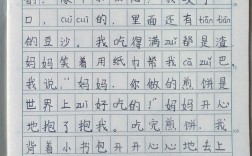 口，cuì cuì 的，里面还有 tián tián
的豆沙。我吃得满 zuǐ 都是渣
妈妈笑着用纸巾帮我 cā zuǐ 巴
我说："妈妈，你做的煎饼是
世界上 zuì 好吃的！"妈妈开心
地抱了抱我。吃完煎饼，我
背着小书包开开心心地去上